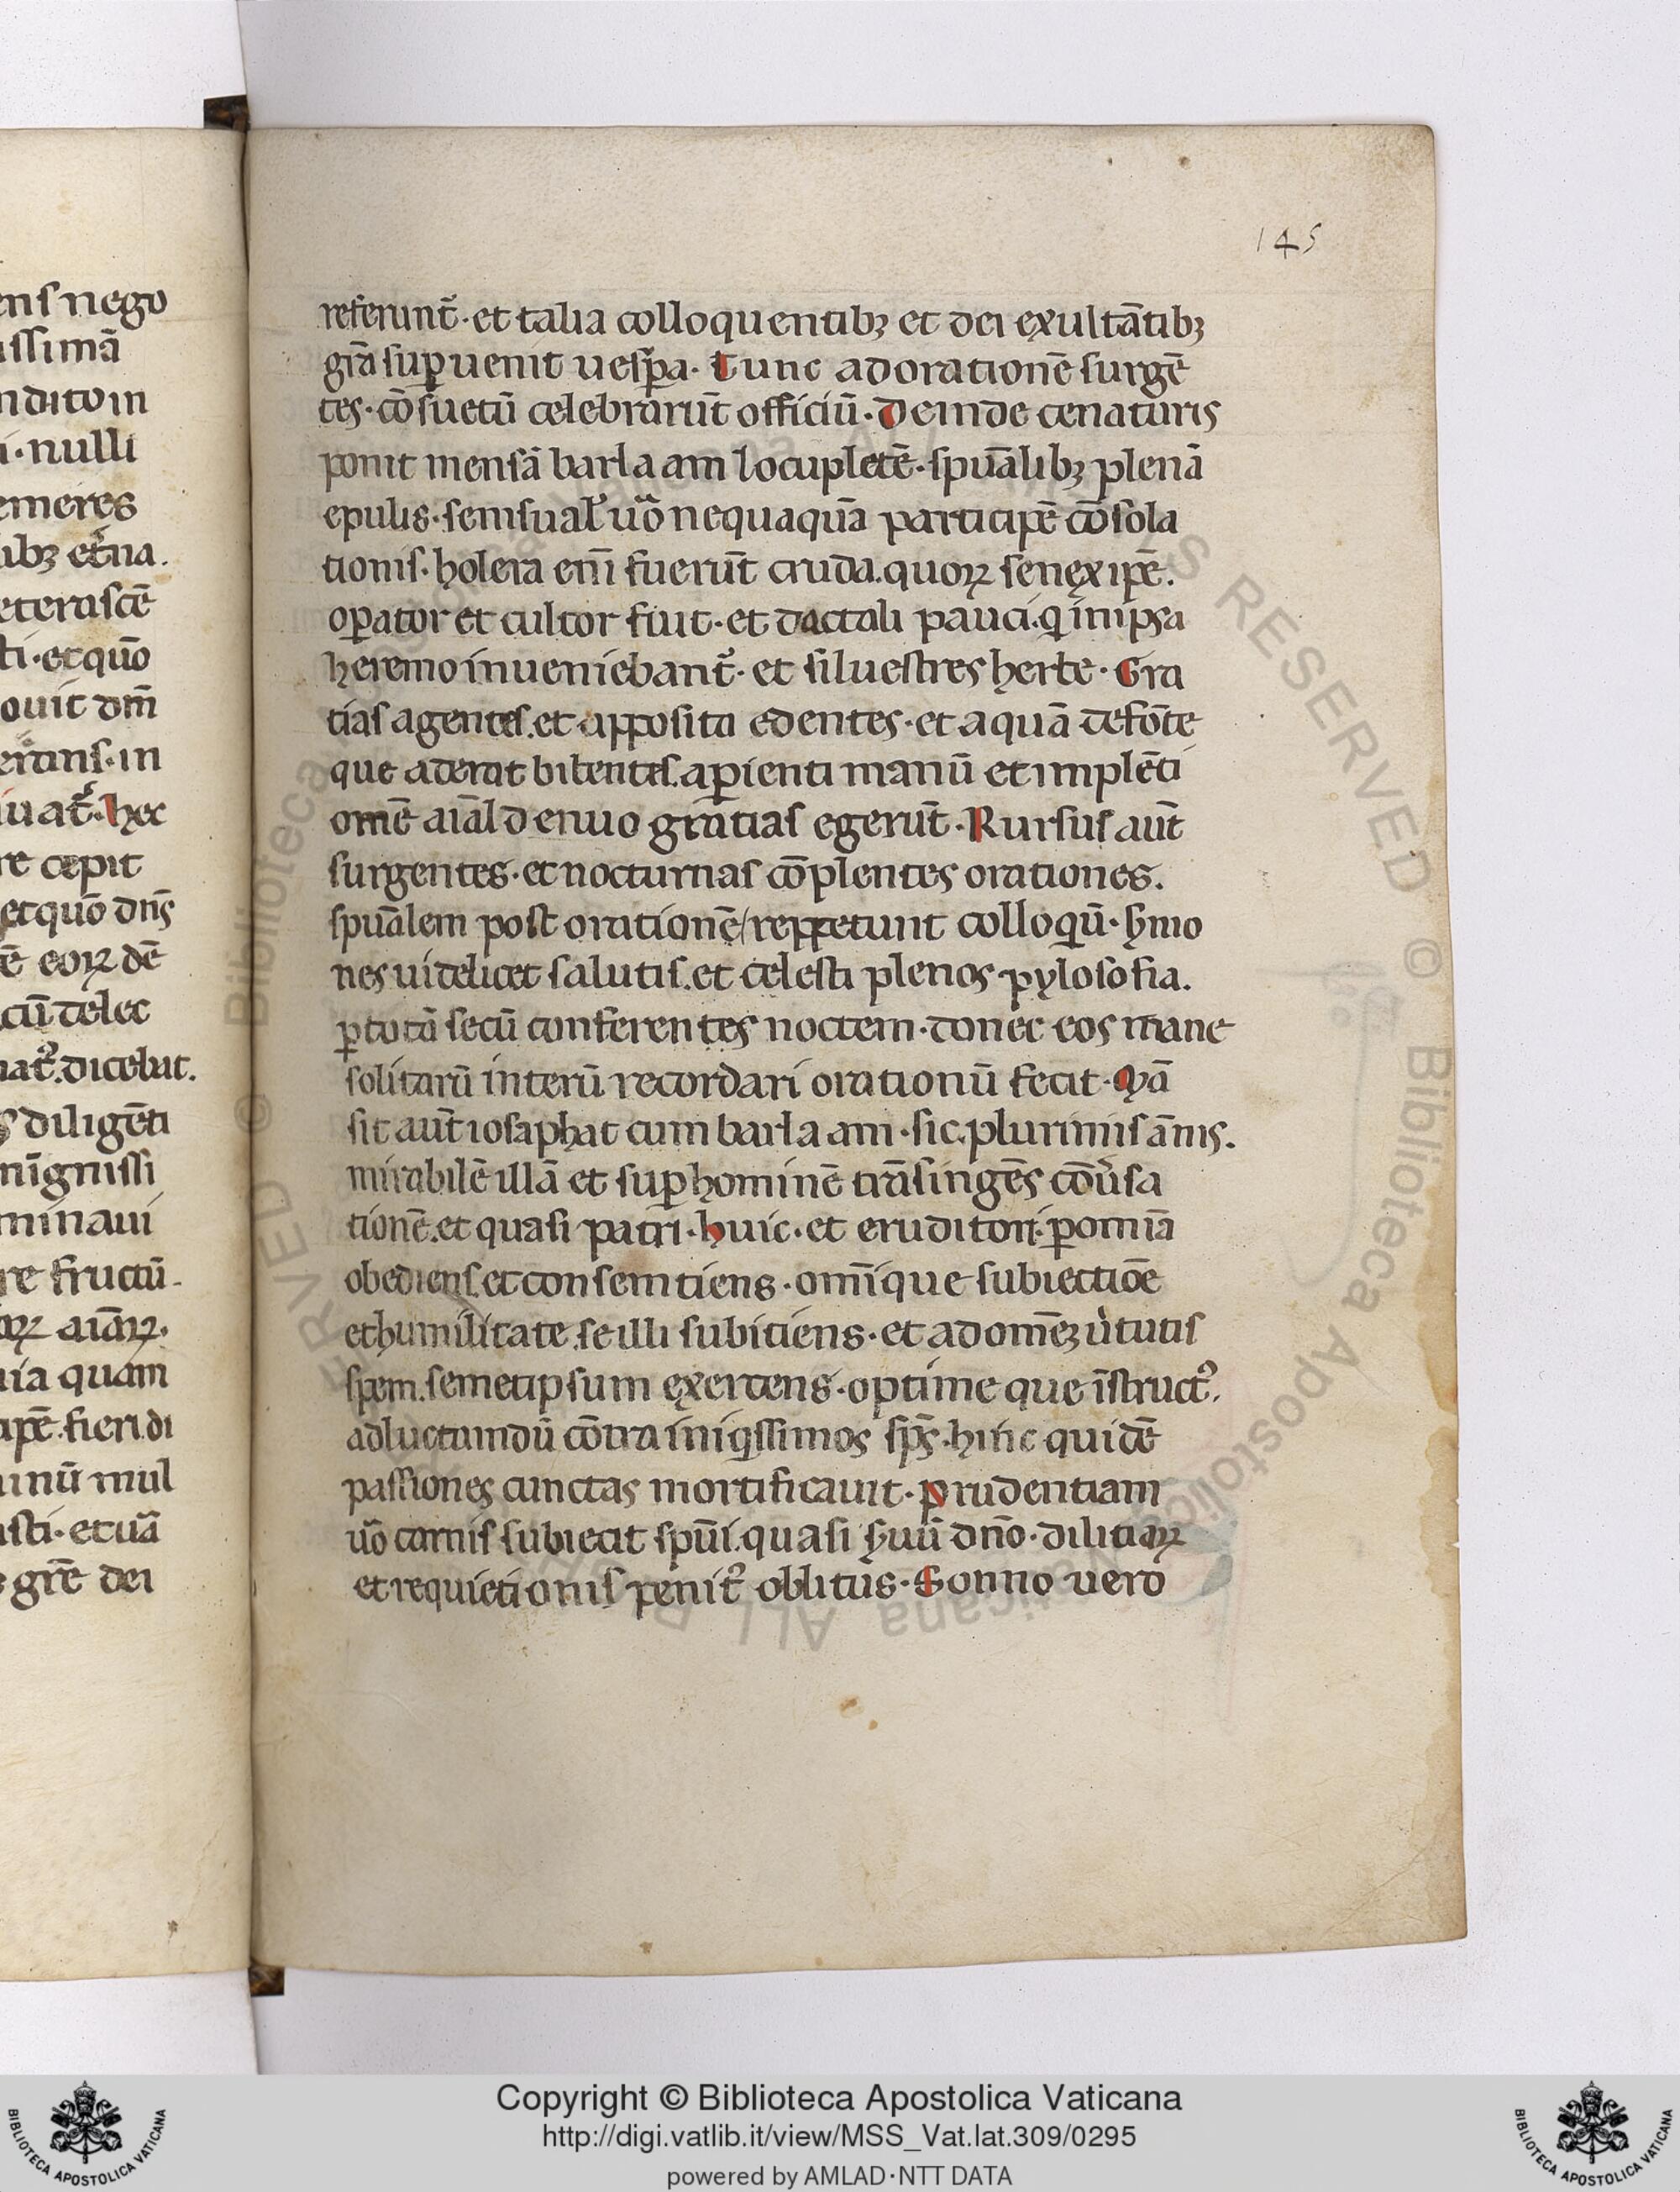 145
ens nego
issimā
ndito in
i·nulli
emeres
ibꝫ et̄na.
eterascē
ti·et quō
ouit dm̄
erans·in
iuat᷑·hec
re cepit
et quō dn̄s
ē eoꝝ dē
cū delec
nat᷑.dicebat.
s diligēti
nīgnissi
minaui
re fructū.
oꝝ aīaꝝ.
uia quam
ipē.fieri.di
inū mul
sti·et uā
gr̄e dei
referunt᷑·et talia colloquentibꝫ et dei exultātibꝫ
gr̄a suꝑuenit uesꝑa. Tunc ad orationē surgē
tes·cōsuetū celebrarūt officiū·Deinde cenaturis
ponit mensā barlaam locupletē·spūalibꝫ plenā
epulis·semsual᷑ uō nequaquā participē cōsola
tionis·holera enī fuerūt cruda.quoꝝ senex ipē.
oꝑator et cultor fuit·et dactali pauci.q in ipsa
heremo inueniebant᷑·et siluestres herbe·Gra
tias agentes.et apposita edentes·et aquā de fōte
que aderat bibentes.aꝑienti manū et implēti
omē aīal denuo gratias egerūt·Rursus aūt
surgentes·et nocturnas cōplentes orationes.
spūalem post orationē/reppetunt colloqū·ẜmo
nes uidelicet salutis.et celesti plenos pylosofia.
ꝑ totā secū conferentes noctem·donec eos mane
solitarū interū recordari orationū fecit·Mā
sit aūt iosaphat cum barlaam·sic.plurimis ānis.
mirabilē illā et suꝑ hominē trāsingēs cōu̾sa
tionē.et quasi patri·huic·et eruditori.ꝑ omīa
obediens.et consemtiens·omīque subiectiōe
et humilitate.se illi subitiens·et ad omēꝫ u̾tutis
spem.semetipsum exercens·optime que īstruct᷒.
ad luctamdū cōtra iniqissimos sp̄s·hinc quidē
passiones cunctas mortificauit·Prudentiam
uō carnis subiecit spūi.quasi ẜuū dn̄o·dilitiaꝝ
et requietionis penit᷒ oblitus·Sonno vero
Copyright © Biblioteca Apostolica Vaticana
http://digi.vatlib.it/view/MSS_Vat.lat.309/0295
powered by AMLAD·NTT DATA
BIBLIOTECA APOSTOLICA VATICANA
BIBLIOTECA APOSTOLICA VATICANA